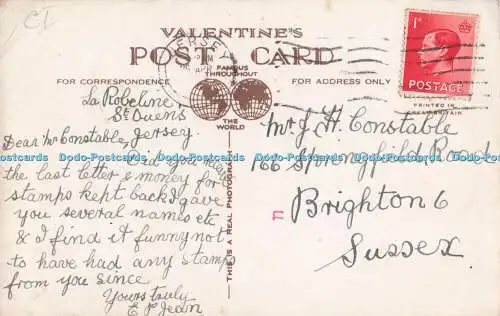 CI
VALENTINE'S
POST CARD
JERSEY
FAMOUS
THROUGHOUT
THE
WORLD
FOR CORRESPONDENCE
FOR ADDRESS ONLY
1D
POSTAGE
PRINTED IN
GREAT BRITAIN
THIS IS A REAL PHOTOGRAPH
La Robeline,
St Ouens
Jersey.
Dear Mr Constable,
Did you
the last letter & money for
stamps kept back I gave
you several names etc
& I find it funny not
to have had any stamps
from you since
Yours truly
E Jean
Mr J H Constable
166 Springfield Road
Brighton 6
Sussex
n
Dodo-Postcards Dodo-Postcards Dodo-Postcards Dodo-Postcards Dodo-Postcards